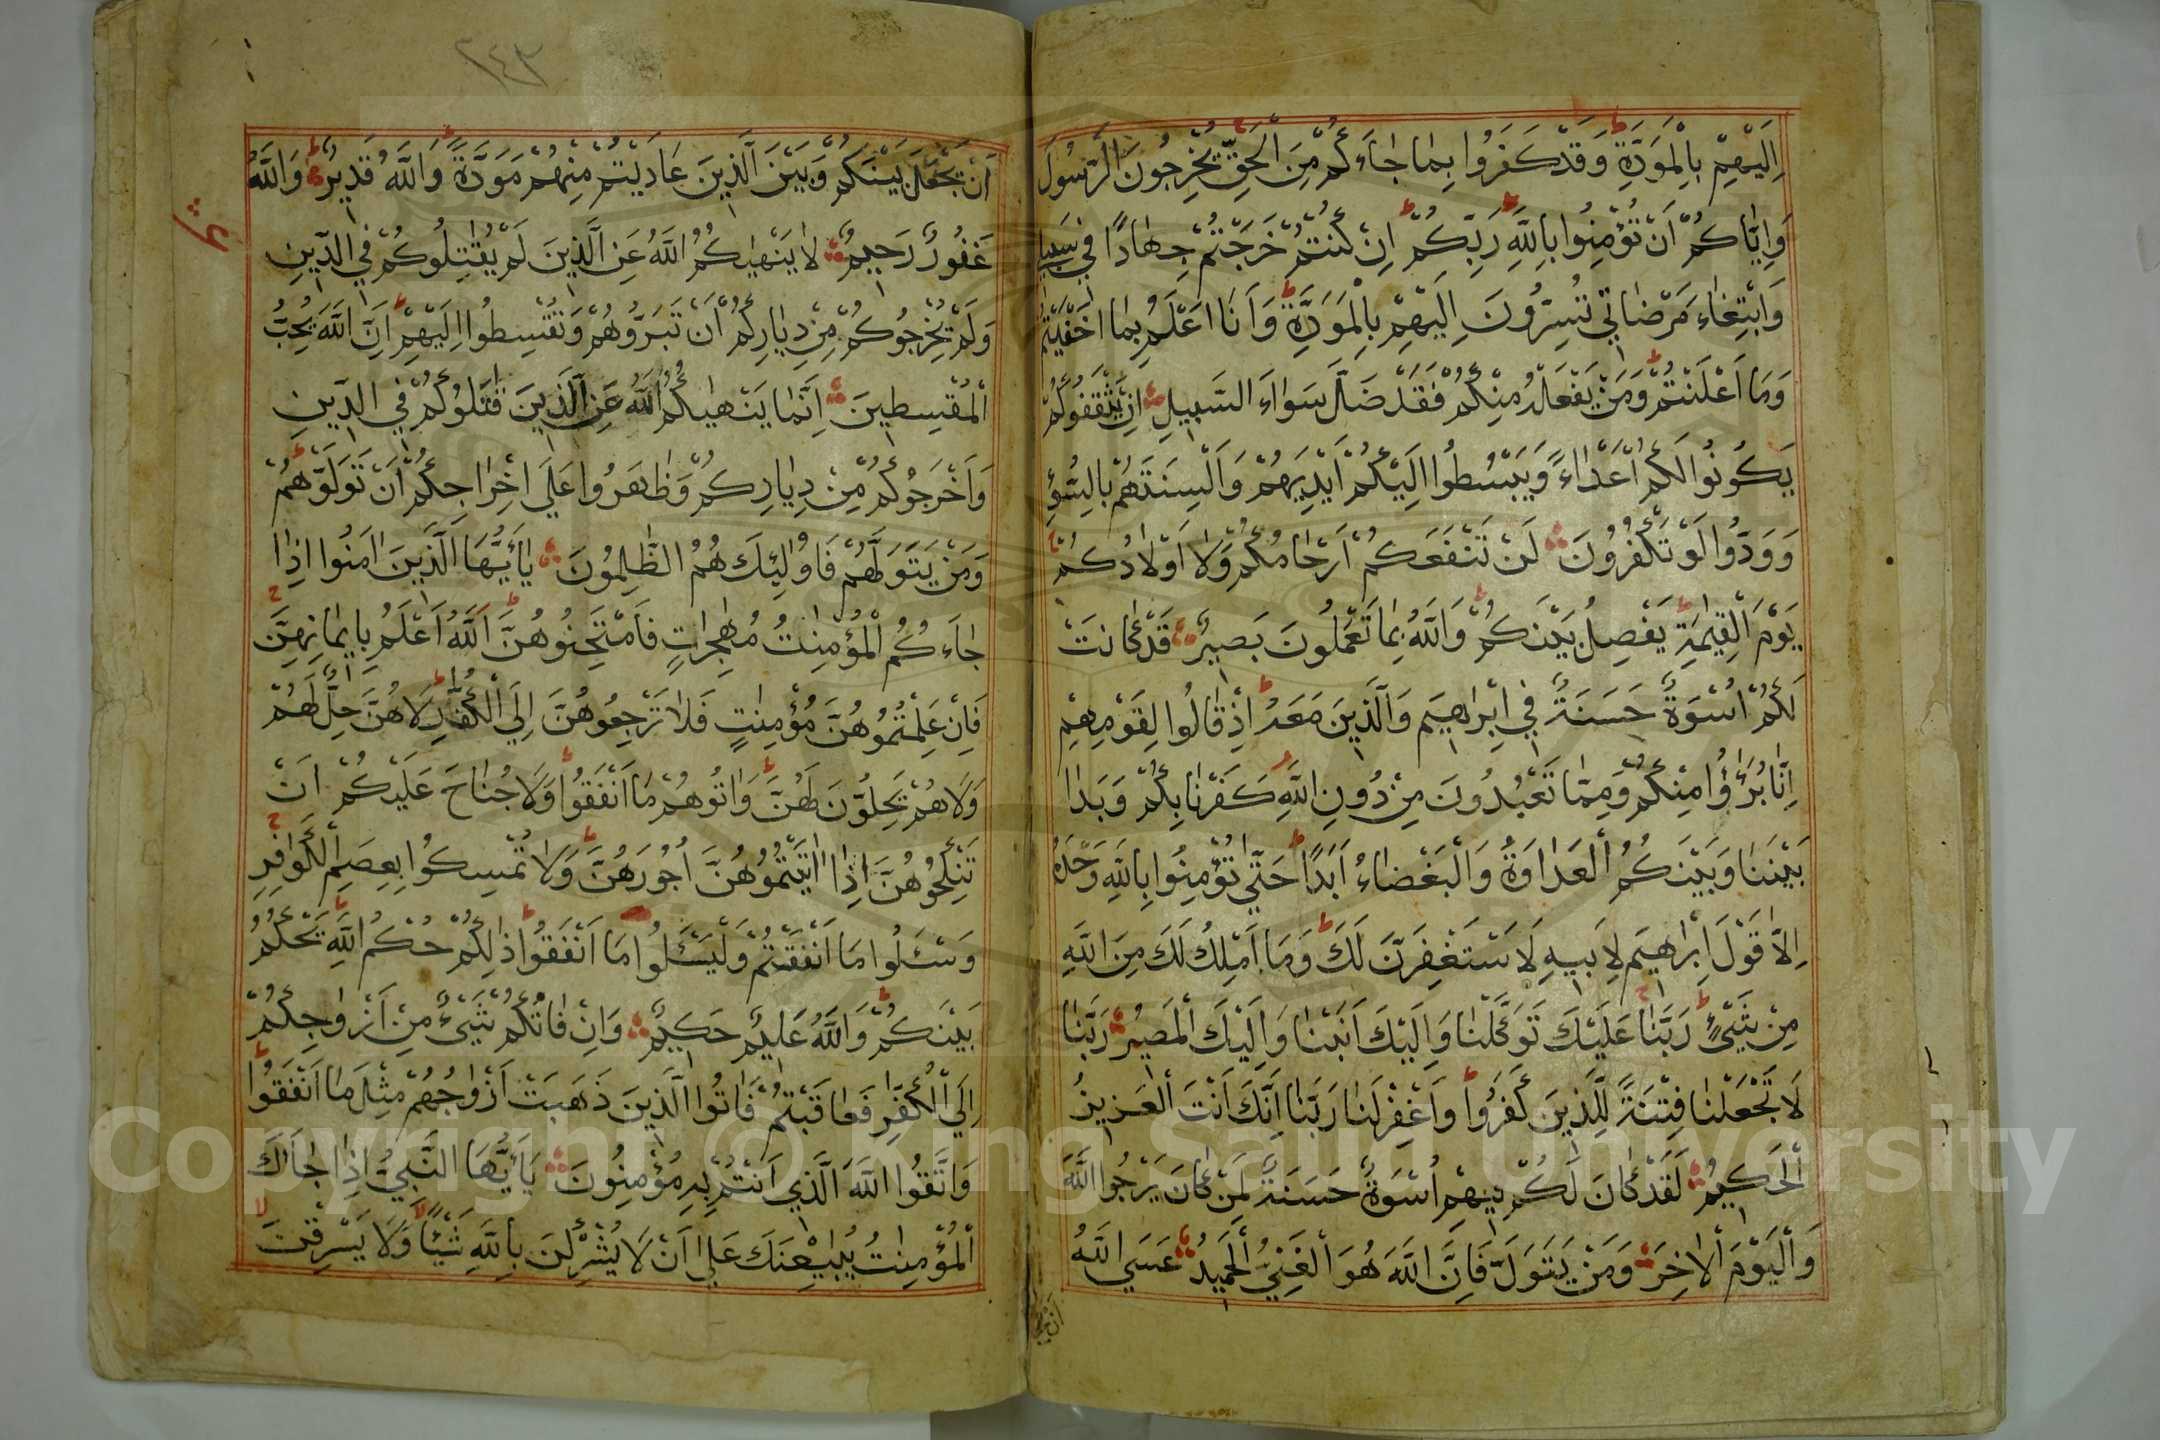 اِلَيْهِمْ بِالْمَوَدَّةِ وَقَدْ كَفَرُوا بِمَا جَاءَكُمْ مِنَ الْحَقِّ يُخْرِجُونَ الرَّسُولَ
وَاِيَّاكُمْ اَنْ تُؤْمِنُوا بِاللّٰهِ رَبِّكُمْ اِنْ كُنْتُمْ خَرَجْتُمْ جِهَادًا فِي سَبِيلِي
وَابْتِغَاءَ مَرْضَاتِي تُسِرُّونَ اِلَيْهِمْ بِالْمَوَدَّةِ وَاَنَا اَعْلَمُ بِمَا اَخْفَيْتُمْ
وَمَا اَعْلَنْتُمْ وَمَنْ يَفْعَلْهُ مِنْكُمْ فَقَدْ ضَلَّ سَوَاءَ السَّبِيلِ اِنْ يَثْقَفُوكُمْ
يَكُونُوا لَكُمْ اَعْدَاءً وَيَبْسُطُوا اِلَيْكُمْ اَيْدِيَهُمْ وَاَلْسِنَتَهُمْ بِالسُّوءِ
وَوَدُّوا لَوْ تَكْفُرُونَ لَنْ تَنْفَعَكُمْ اَرْحَامُكُمْ وَلَا اَوْلَادُكُمْ
يَوْمَ الْقِيٰمَةِ يَفْصِلُ بَيْنَكُمْ وَاللّٰهُ بِمَا تَعْمَلُونَ بَصِيرٌ قَدْ كَانَتْ
لَكُمْ اُسْوَةٌ حَسَنَةٌ فِي اِبْرٰهِيمَ وَالَّذِينَ مَعَهُ اِذْ قَالُوا لِقَوْمِهِمْ
اِنَّا بُرَءٰؤُا مِنْكُمْ وَمِمَّا تَعْبُدُونَ مِنْ دُونِ اللّٰهِ كَفَرْنَا بِكُمْ وَبَدَا
بَيْنَنَا وَبَيْنَكُمُ الْعَدَاوَةُ وَالْبَغْضَاءُ اَبَدًا حَتّٰى تُؤْمِنُوا بِاللّٰهِ وَحْدَهُ
اِلَّا قَوْلَ اِبْرٰهِيمَ لِاَبِيهِ لَاَسْتَغْفِرَنَّ لَكَ وَمَا اَمْلِكُ لَكَ مِنَ اللّٰهِ
مِنْ شَيْءٍ رَبَّنَا عَلَيْكَ تَوَكَّلْنَا وَاِلَيْكَ اَنَبْنَا وَاِلَيْكَ الْمَصِيرُ رَبَّنَا
لَا تَجْعَلْنَا فِتْنَةً لِلَّذِينَ كَفَرُوا وَاغْفِرْ لَنَا رَبَّنَا اِنَّكَ اَنْتَ الْعَزِيزُ
الْحَكِيمُ لَقَدْ كَانَ لَكُمْ فِيهِمْ اُسْوَةٌ حَسَنَةٌ لِمَنْ كَانَ يَرْجُوا اللّٰهَ
وَالْيَوْمَ الْاٰخِرَ وَمَنْ يَتَوَلَّ فَاِنَّ اللّٰهَ هُوَ الْغَنِيُّ الْحَمِيدُ عَسَى اللّٰهُ
٢٤٣
اَنْ يَجْعَلَ بَيْنَكُمْ وَبَيْنَ الَّذِينَ عَادَيْتُمْ مِنْهُمْ مَوَدَّةً وَاللّٰهُ قَدِيرٌ وَاللّٰهُ
غَفُورٌ رَحِيمٌ لَا يَنْهٰيكُمُ اللّٰهُ عَنِ الَّذِينَ لَمْ يُقَاتِلُوكُمْ فِي الدِّينِ
وَلَمْ يُخْرِجُوكُمْ مِنْ دِيَارِكُمْ اَنْ تَبَرُّوهُمْ وَتُقْسِطُوا اِلَيْهِمْ اِنَّ اللّٰهَ يُحِبُّ
الْمُقْسِطِينَ اِنَّمَا يَنْهٰيكُمُ اللّٰهُ عَنِ الَّذِينَ قَاتَلُوكُمْ فِي الدِّينِ
وَاَخْرَجُوكُمْ مِنْ دِيَارِكُمْ وَظَاهَرُوا عَلٰى اِخْرَاجِكُمْ اَنْ تَوَلَّوْهُمْ
وَمَنْ يَتَوَلَّهُمْ فَاُولٰئِكَ هُمُ الظّٰلِمُونَ يَا اَيُّهَا الَّذِينَ اٰمَنُوا اِذَا
جَاءَكُمُ الْمُؤْمِنٰتُ مُهٰجِرٰتٍ فَامْتَحِنُوهُنَّ اَللّٰهُ اَعْلَمُ بِاِيمَانِهِنَّ
فَاِنْ عَلِمْتُمُوهُنَّ مُؤْمِنٰتٍ فَلَا تَرْجِعُوهُنَّ اِلَى الْكُفَّارِ لَا هُنَّ حِلٌّ لَهُمْ
وَلَا هُمْ يَحِلُّونَ لَهُنَّ وَاٰتُوهُمْ مَا اَنْفَقُوا وَلَا جُنَاحَ عَلَيْكُمْ اَنْ
تَنْكِحُوهُنَّ اِذَا اٰتَيْتُمُوهُنَّ اُجُورَهُنَّ وَلَا تُمْسِكُوا بِعِصَمِ الْكَوَافِرِ
وَسْـَٔلُوا مَا اَنْفَقْتُمْ وَلْيَسْـَٔلُوا مَا اَنْفَقُوا ذٰلِكُمْ حُكْمُ اللّٰهِ يَحْكُمُ
بَيْنَكُمْ وَاللّٰهُ عَلِيمٌ حَكِيمٌ وَاِنْ فَاتَكُمْ شَيْءٌ مِنْ اَزْوَاجِكُمْ
اِلَى الْكُفَّارِ فَعَاقَبْتُمْ فَاٰتُوا الَّذِينَ ذَهَبَتْ اَزْوَاجُهُمْ مِثْلَ مَا اَنْفَقُوا
وَاتَّقُوا اللّٰهَ الَّذِي اَنْتُمْ بِهِ مُؤْمِنُونَ يَا اَيُّهَا النَّبِيُّ اِذَا جَاءَكَ
الْمُؤْمِنٰتُ يُبَايِعْنَكَ عَلٰى اَنْ لَا يُشْرِكْنَ بِاللّٰهِ شَيْئًا وَلَا يَسْرِقْنَ
Copyright © King Saud University